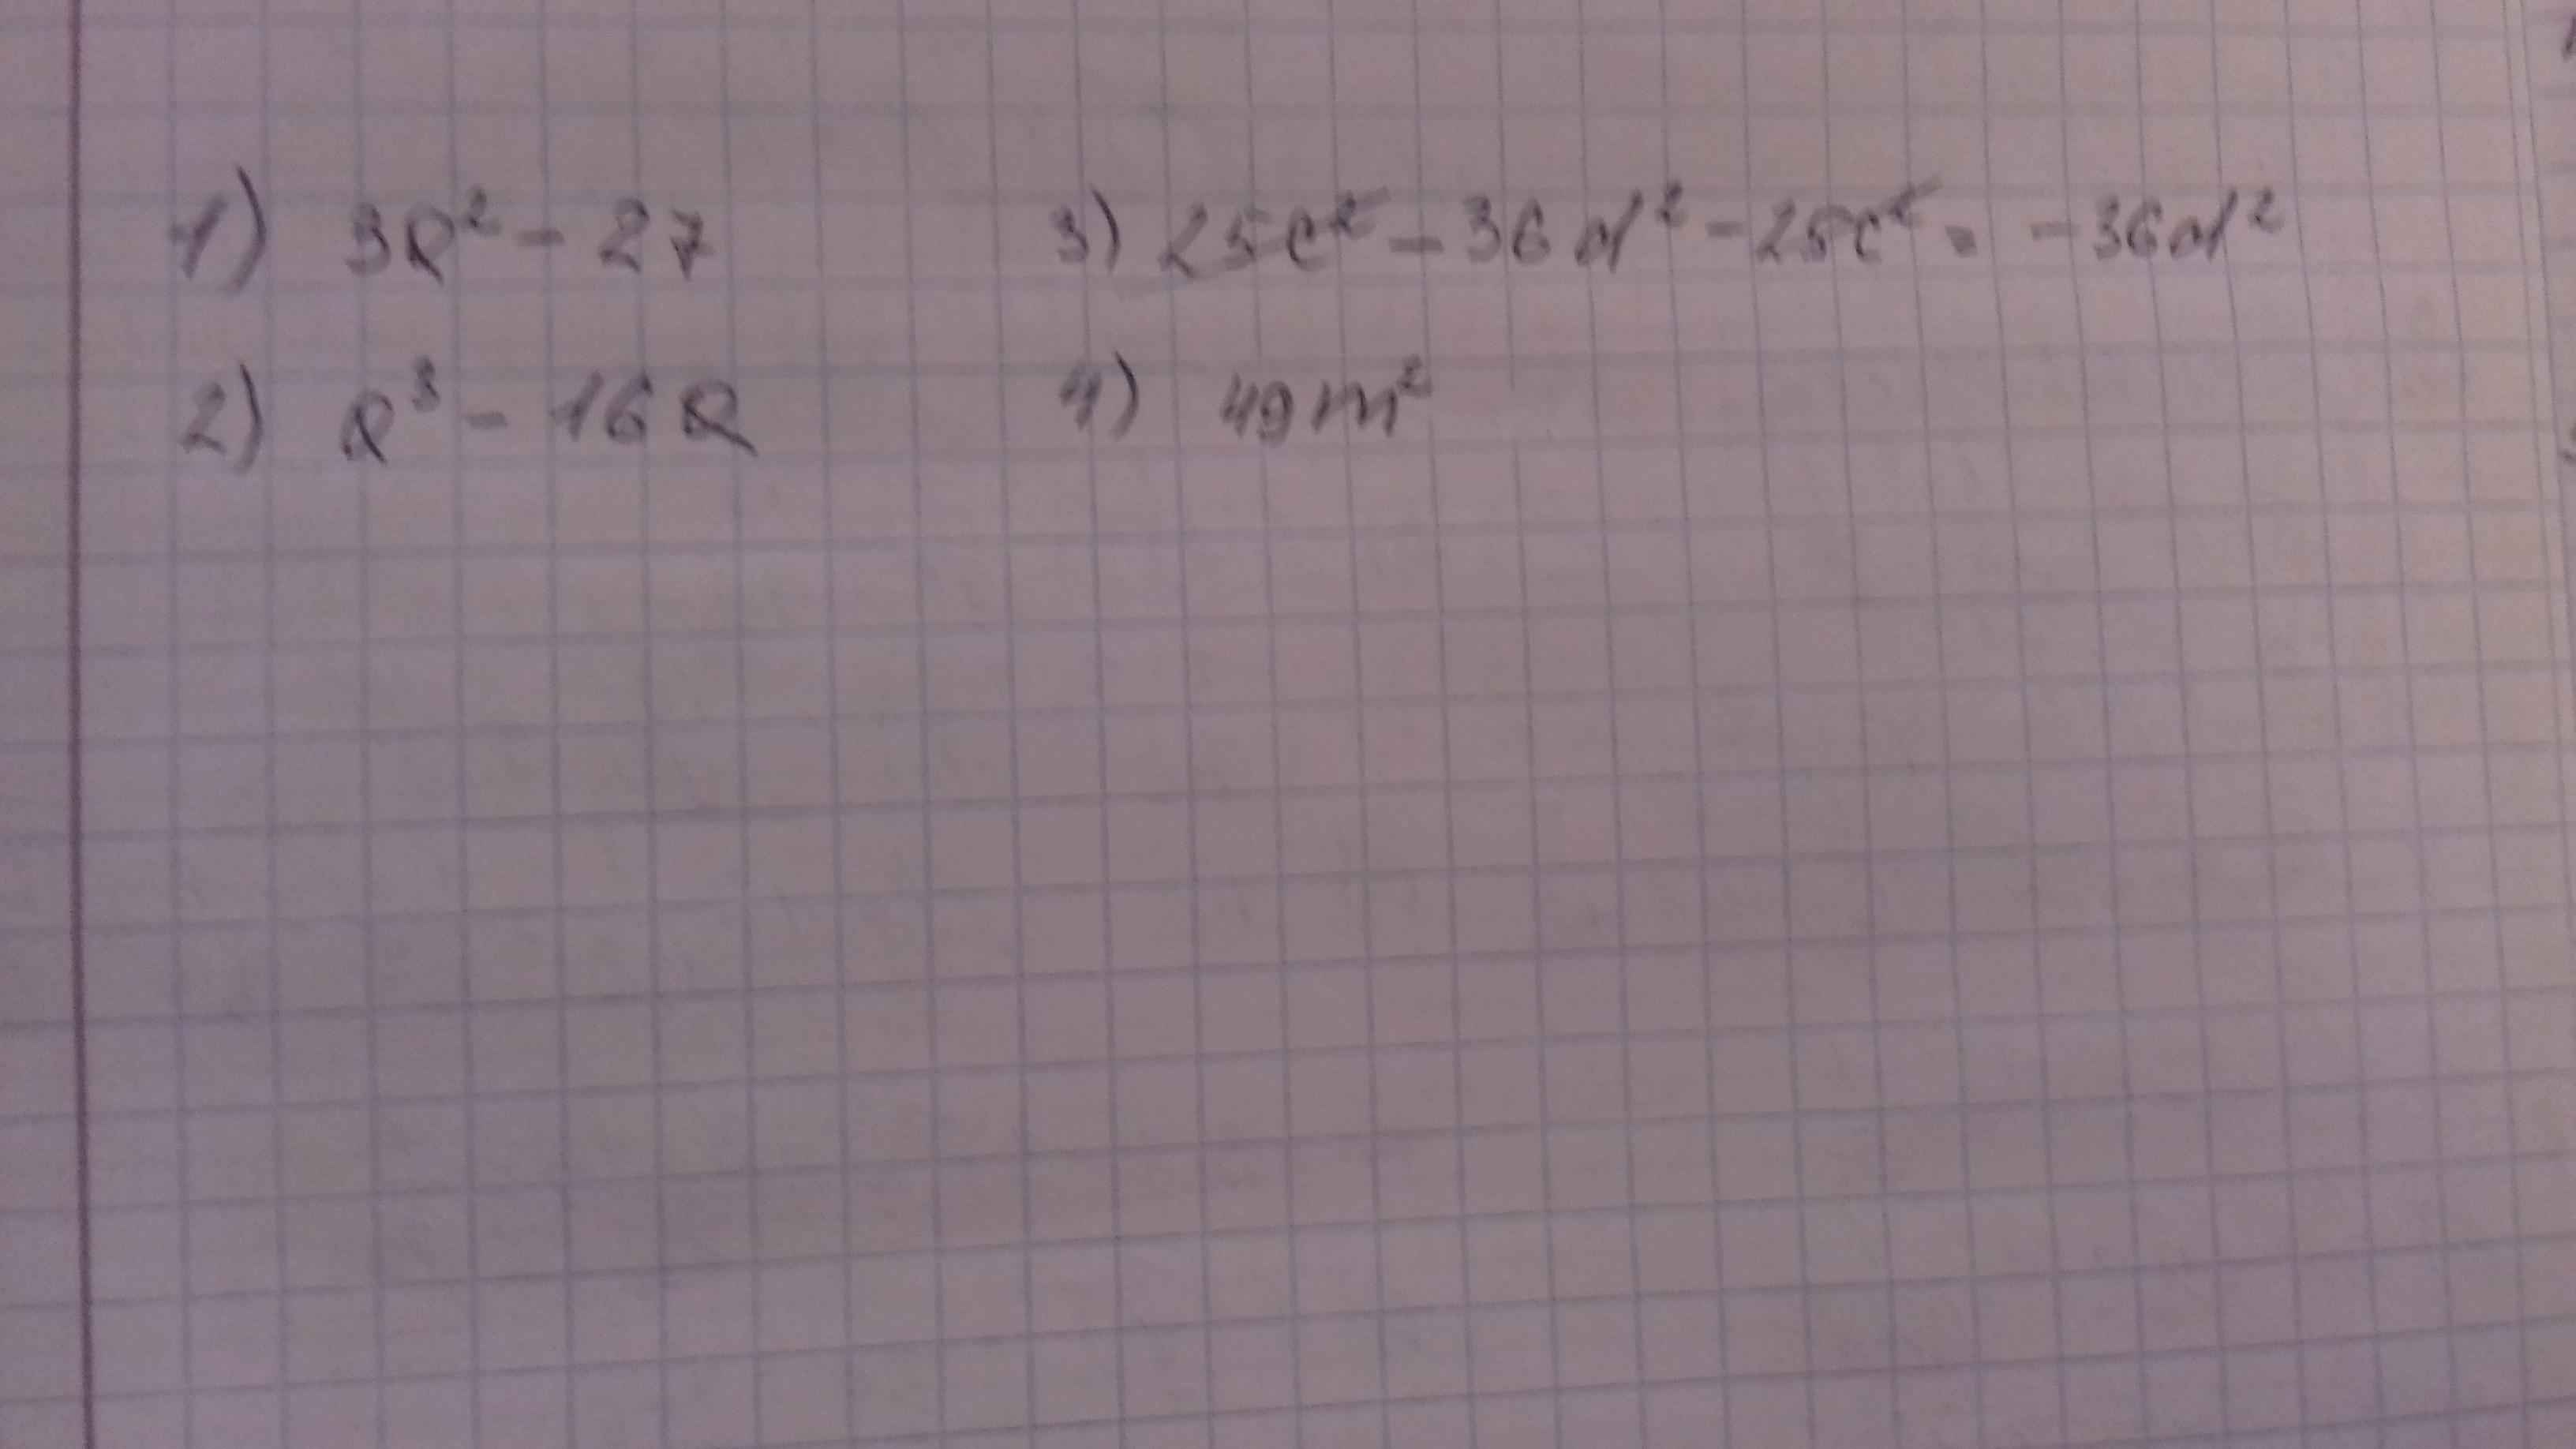 1) 3a² - 27
2) a³ - 16a
3) 25c² - 36d² - 25c² = -36d²
4) 49m²